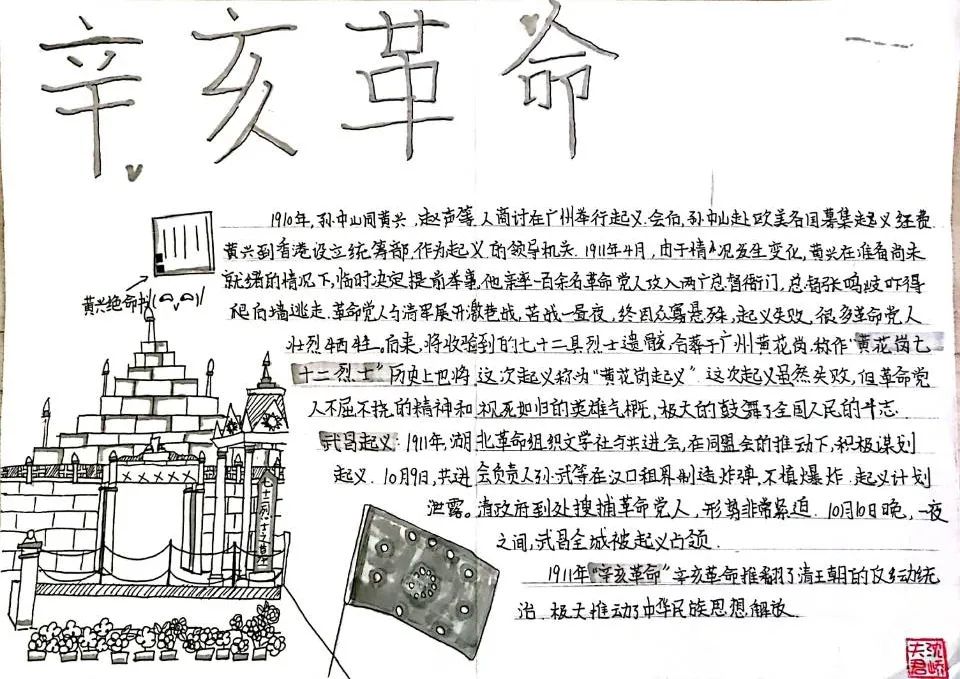 辛亥革命
1910年,孙中山同黄兴,赵声等人商讨在广州举行起义.会后,孙中山赴欧美各国募集起义经费.
黄兴到香港设立统筹部,作为起义的领导机关.1911年4月,由于情况发生变化,黄兴在准备尚未
就绪的情况下,临时决定提前举事,他亲率一百余名革命党人攻入两广总督衙门,总督张鸣岐吓得
黄兴绝命书
爬后墙逃走.革命党人与清军展开激巷战,苦战一昼夜,终因众寡悬殊,起义失败,很多革命党人
壮烈牺牲。后来,将收验到的七十二具烈士遗骸,合葬于广州黄花岗,称作"黄花岗七
十二烈士"历史上也将这次起义称为"黄花岗起义".这次起义虽然失败,但革命党
人不屈不挠的精神和视死如归的英雄气概,极大的鼓舞了全国人民的斗志.
武昌起义:1911年,湖北革命组织文学社与共进会,在同盟会的推动下,积极谋划
起义.10月9日,共进会负责人孙武等在汉口租界制造炸弹,不慎爆炸.起义计划
泄露。清政府到处搜捕革命党人,形势非常紧迫.10月10日晚,一夜
之间,武昌全城被起义占领.
1911年"辛亥革命"辛亥革命推翻了清王朝的反动统
治.极大推动了中华民族思想解放.
七十二烈士之墓